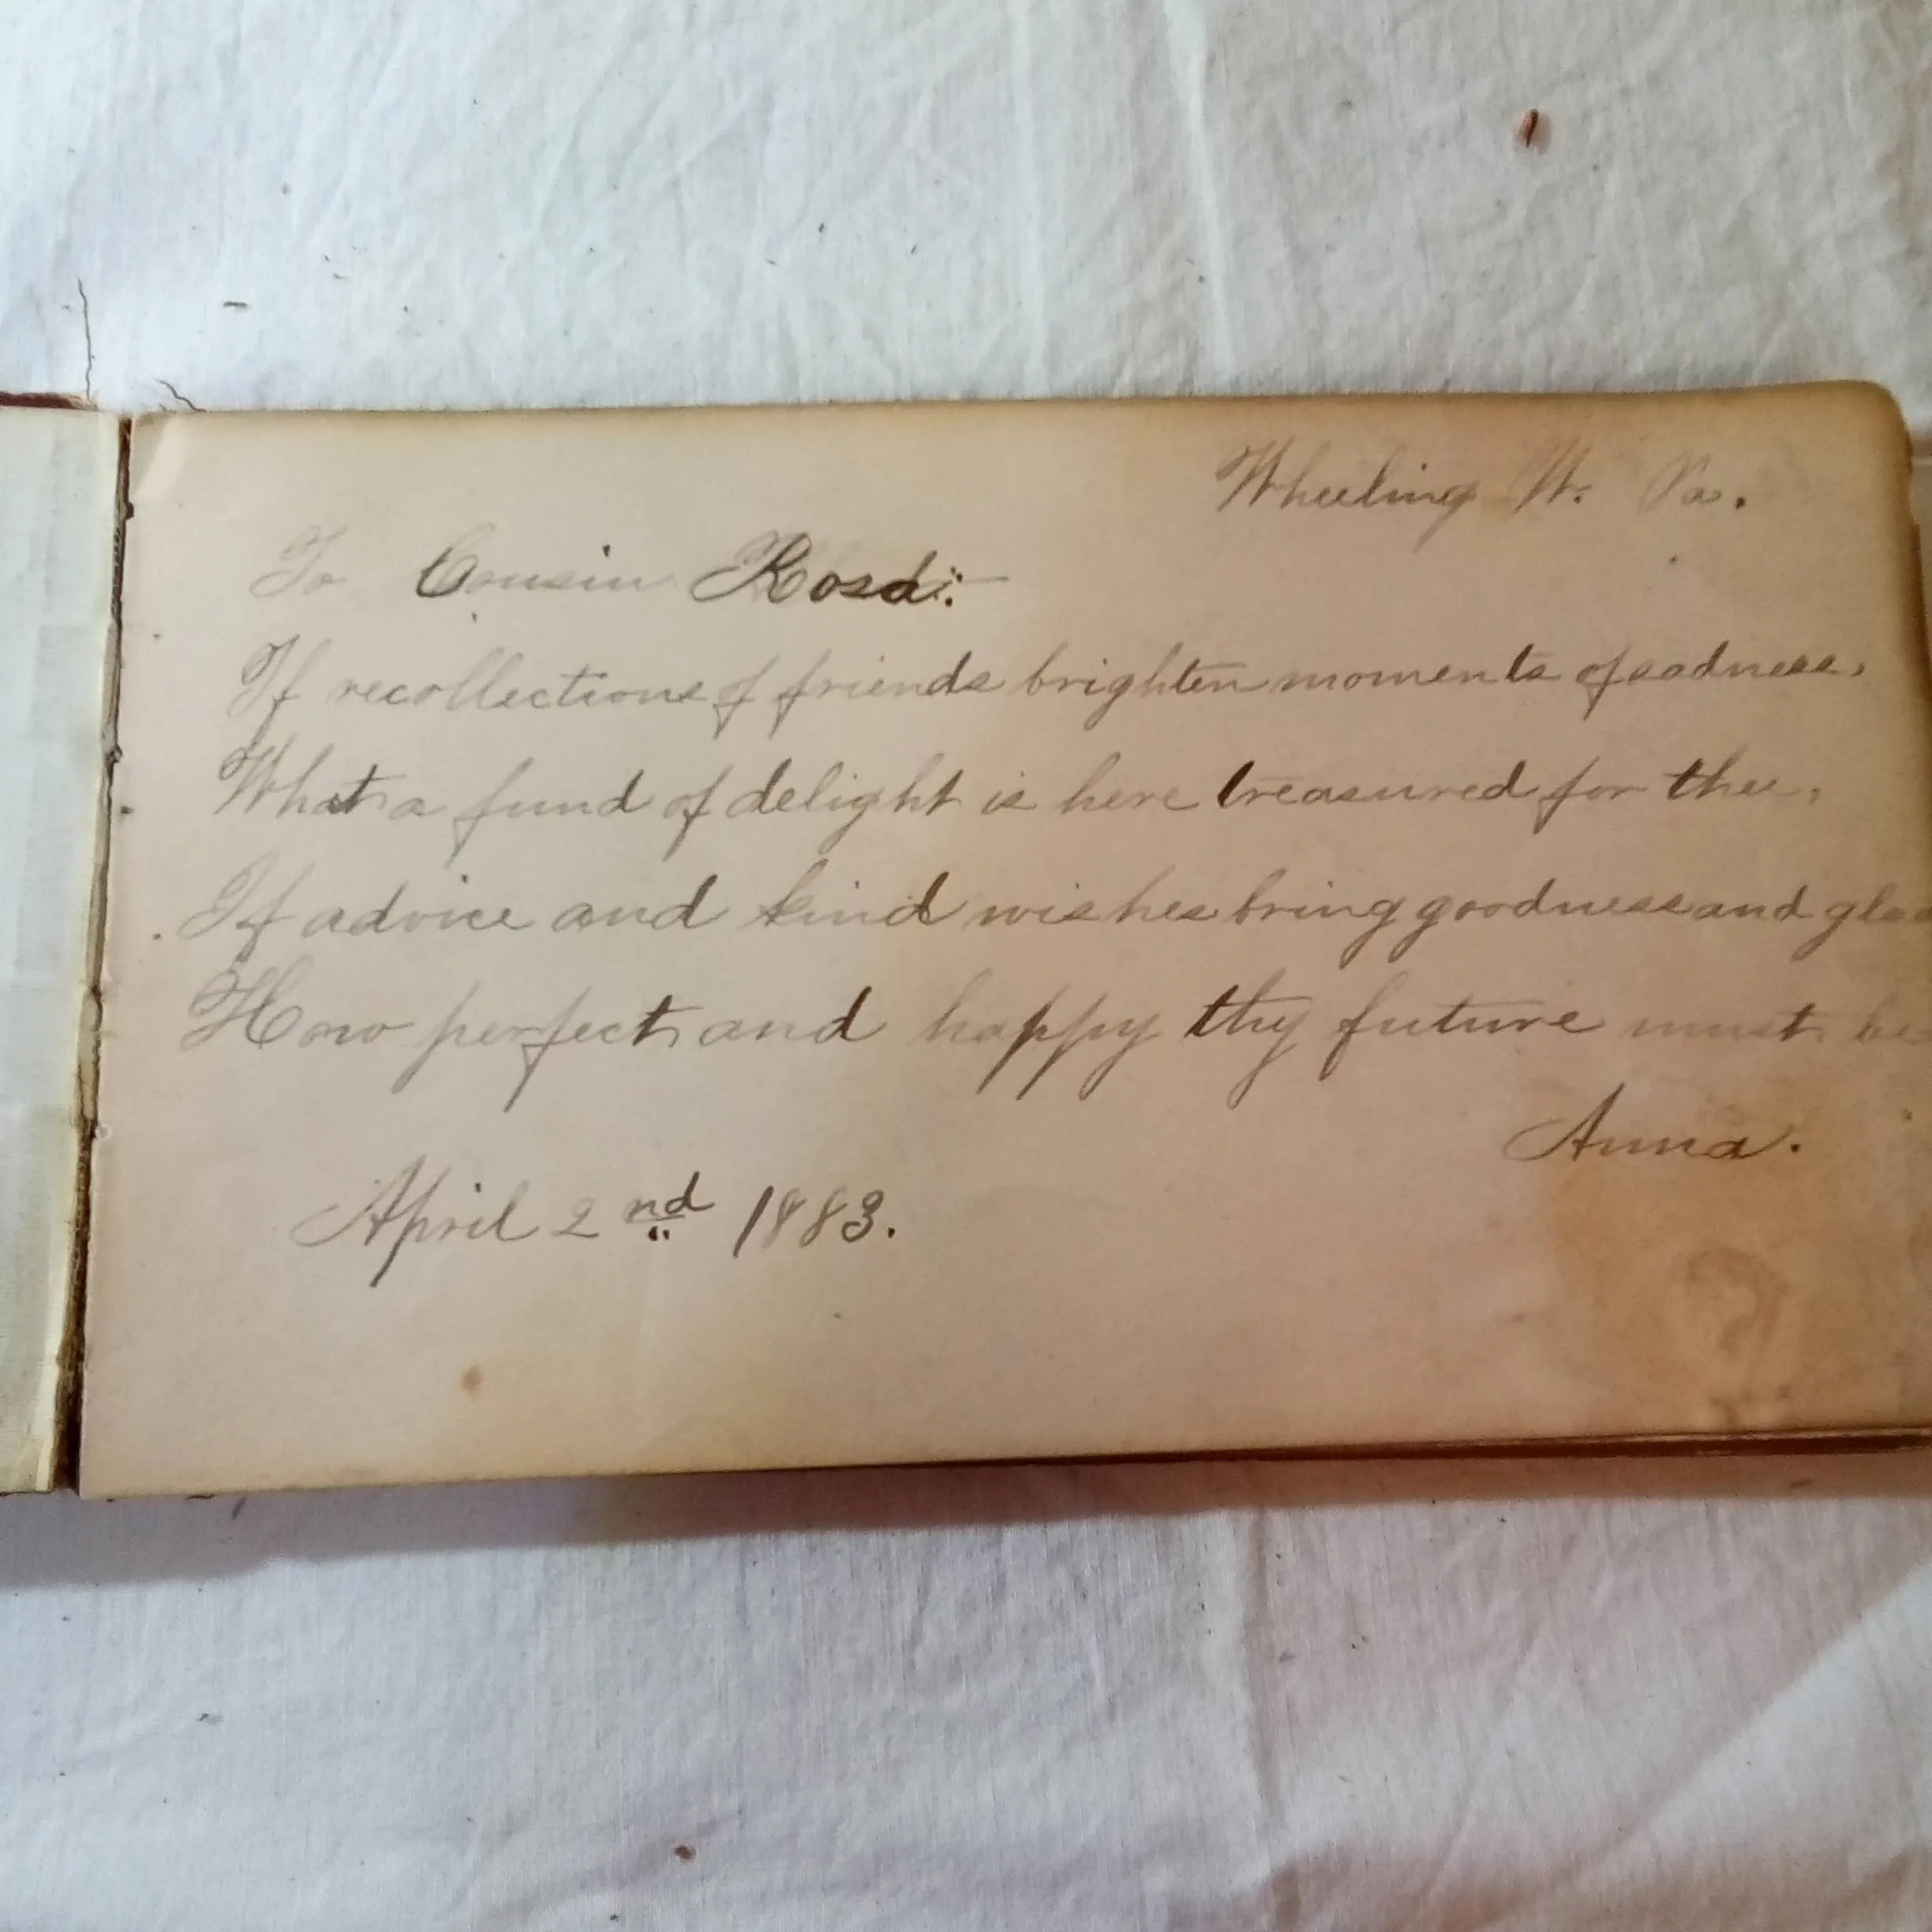 Wheeling W. Va.
To Cousin Rosa:—
If recollections of friends brighten moments of sadness,
What a fund of delight is here treasured for thee,
If advice and kind wishes bring goodness and gla
How perfect and happy thy future must be
Anna.
April 2nd 1883.